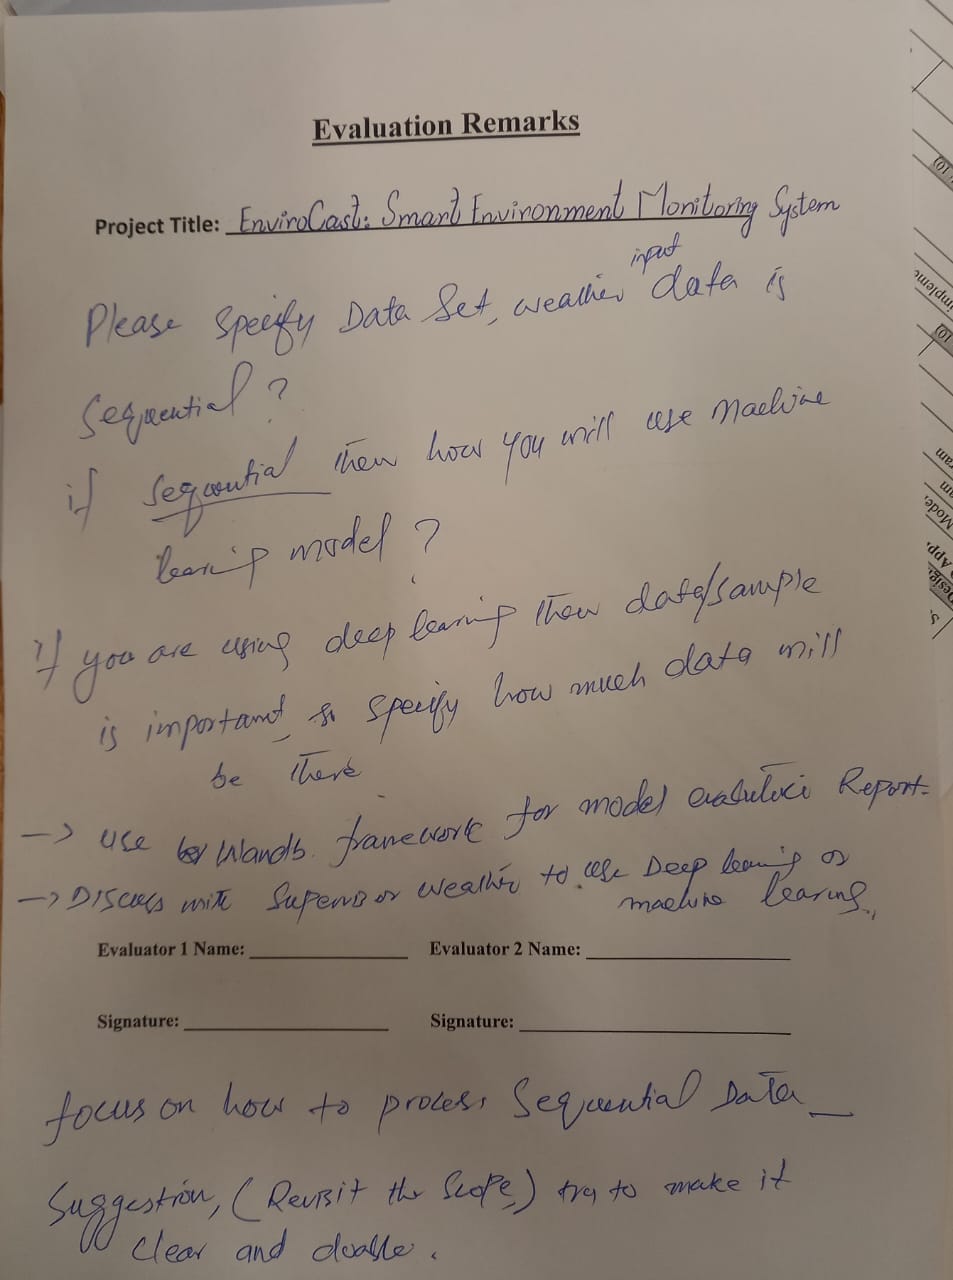 Evaluation Remarks
Project Title: EnviroCast: Smart Environment Monitoring System
input
Please Specify Data Set, weather data is
Sequential ?
if Sequential then how you will use Machine
learing model ?
if you are using deep learing then data/sample
is important so specify how much data will
be there
-> use Wandb. framework for model evalutoi Report-
-> Discuss with Supervisor weather to use Deep learning or
machine learing.
Evaluator 1 Name: Evaluator 2 Name:
Signature: Signature:
focus on how to process Sequential Data
Suggestion, (Revisit the Scope) try to make it
clear and doable.